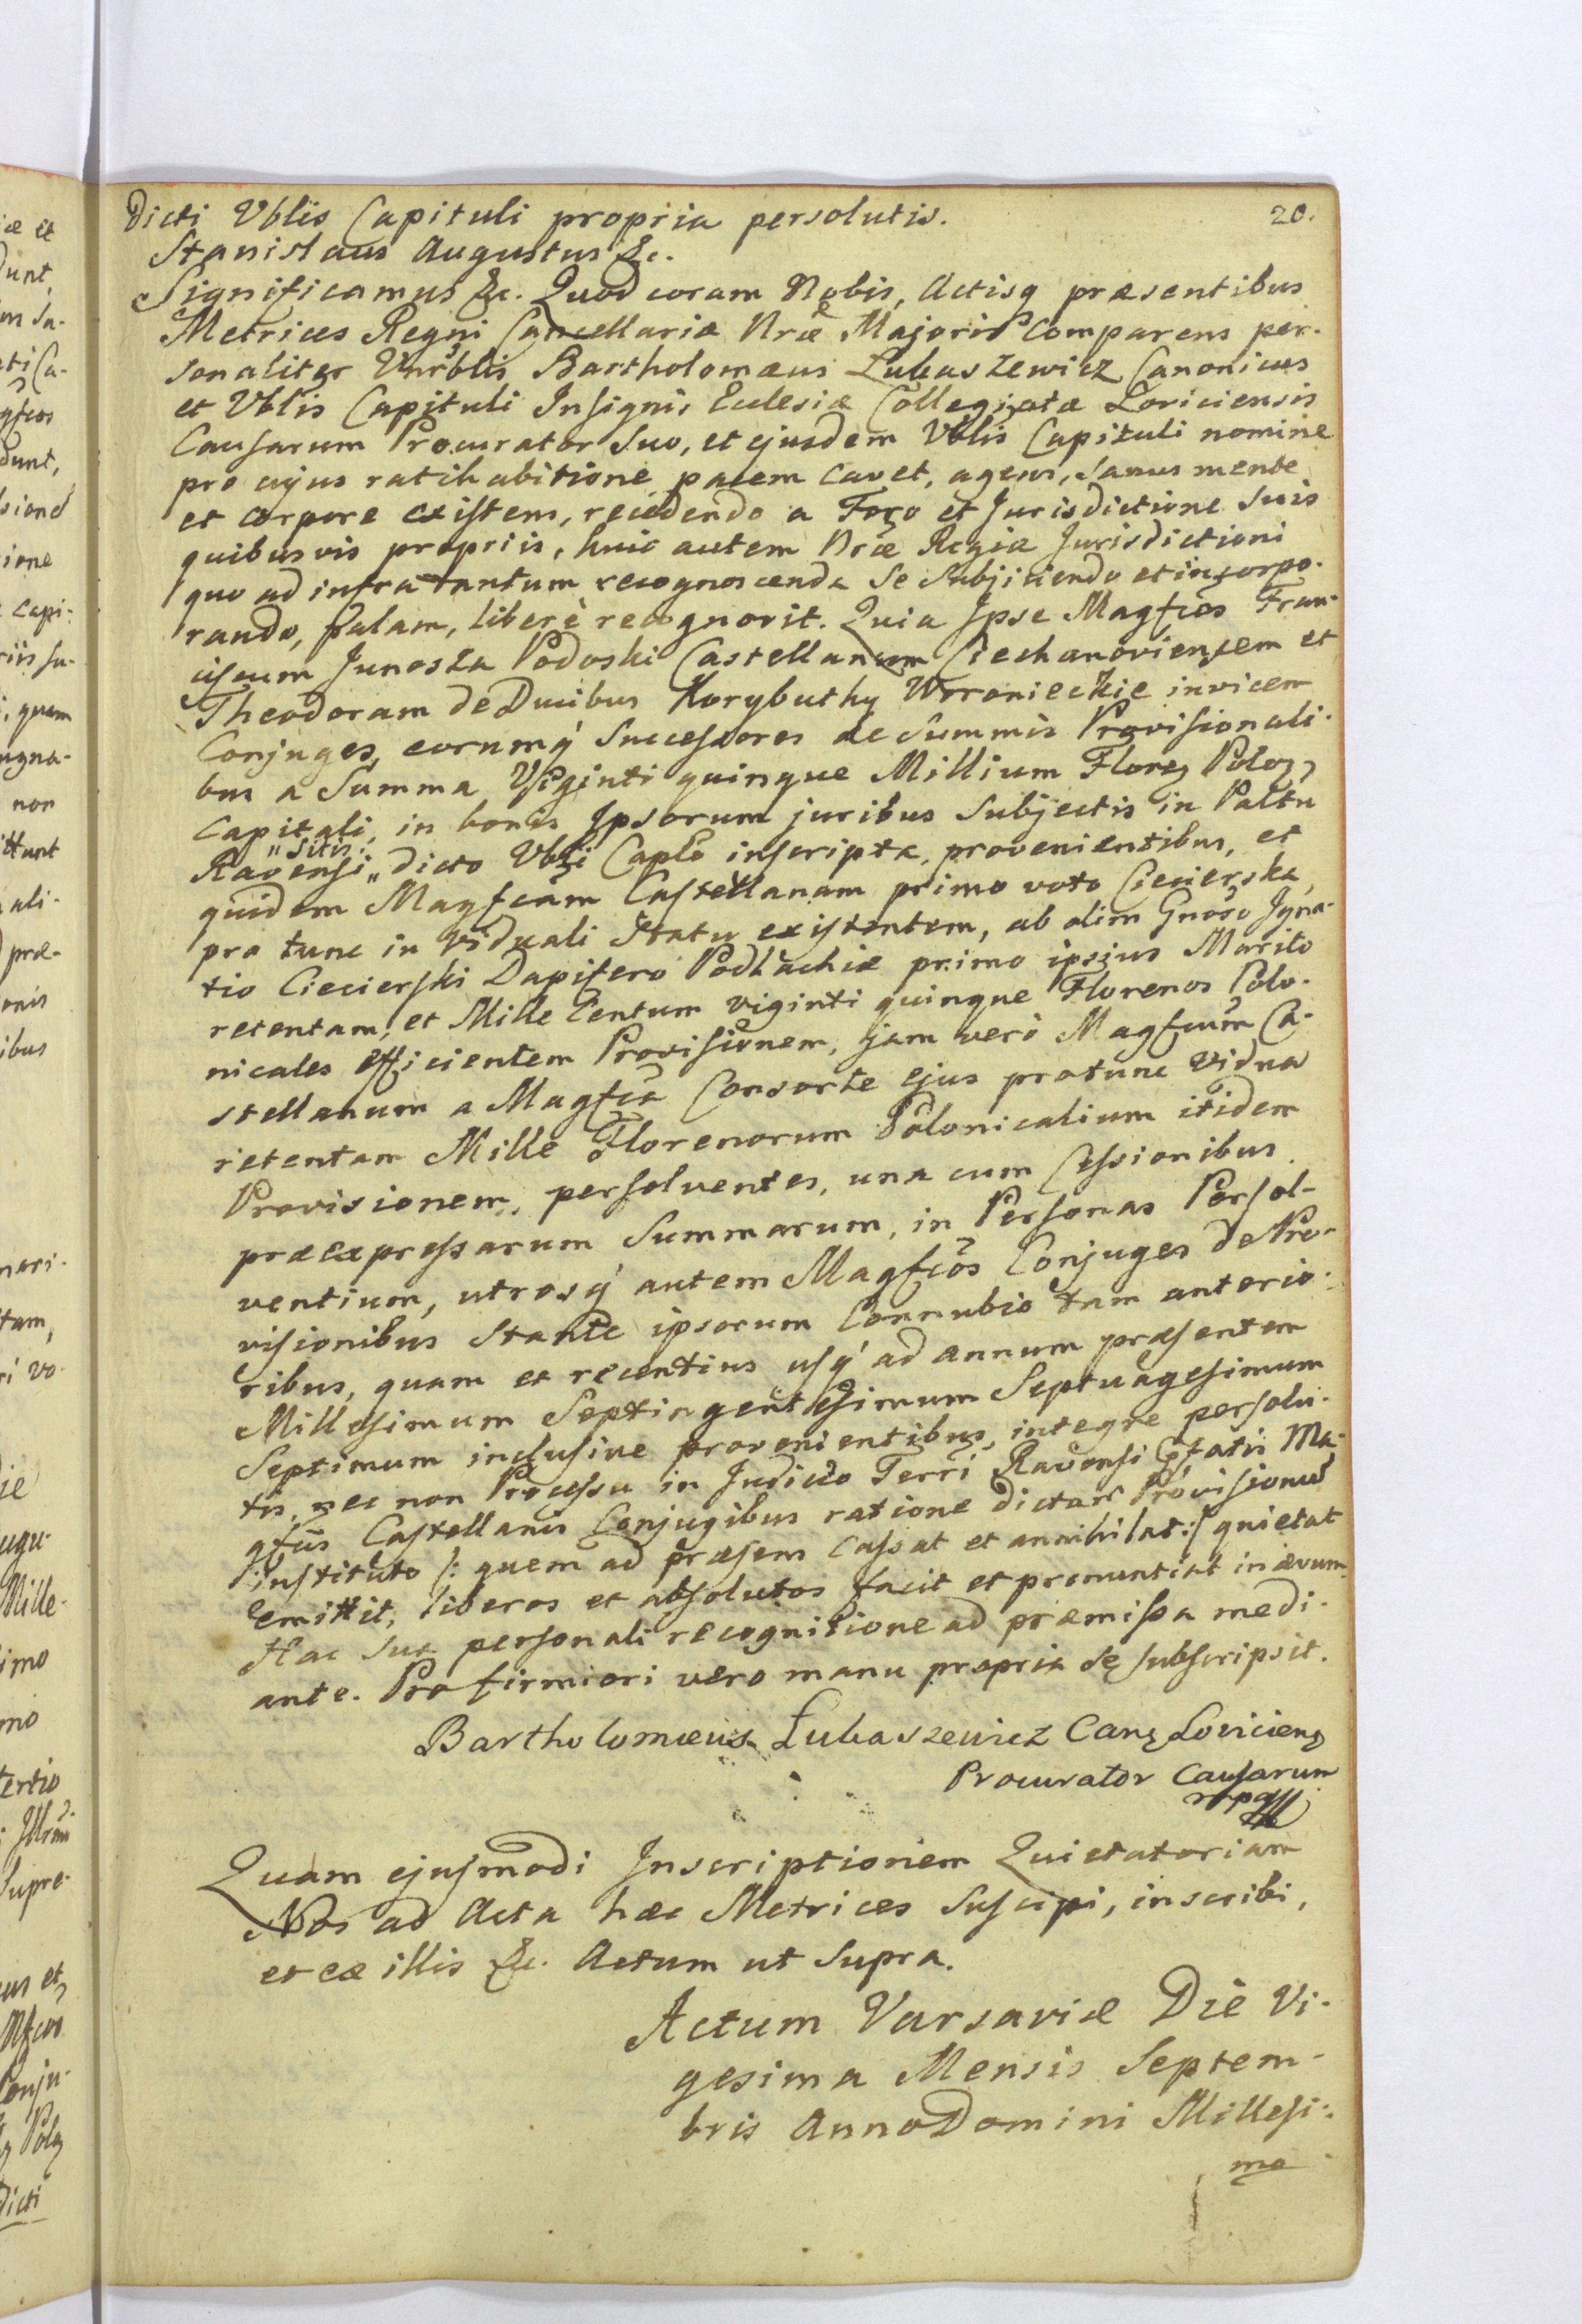 20.
Dicti Vblis Capituli propria persolutis.
Stanislaus Augustus &c.
Significamus &c. Quod coram Nobis, Actisq præsentibus
Metrices Regni Cancellariæ Nræ Majoris Comparens per-
sonaliter Vnrblis Bartholomæus Łukaszewicz Canonicus
et Vblis Capituli Insignis Eclesiæ Collegiatæ Loviciensis
Causarum Procurator Suo, et ejusdem Vblis Capituli nomine
pro cujus ratihabitione pacem cavet, agens, sanus mente
et corpore existens, recedendo a Foro et Jurisdictione Suis
quibusvis propriis, huic autem Nræ Regiæ Jurisdictioni
quo ad infra tantum recognoscenda Se Subjiciendo et incorpo-
rando, palam, liberè recognovit. Quia Ipse Magfcos Fran-
ciscum Junosza Podoski Castellanum Ciechanoviensem et
Theodoram de Ducibus Korybuthy Woronieckie invicem
Conjuges, eorumq Successores de Summis Provisionali-
bus a Summa Viginti quinque Millium Floreg Polog
Capitali, in bonis Ipsorum juribus Subjectis in Palttu
„Sitis
Ravensi „ dicto Vbli Caplo inscripta, provenientibus, et
quidem Magfcam Castellanam primo voto Ciecierska,
pro tunc in Viduali Statu existentem, ab olim Gnoso Igna-
tio Ciecierski Dapifero Podlachiæ primo ipsius Marito
retentam, et Mille Centum viginti quinque Florenos Polo-
nicales efficientem Provisionem, jam verò Magfcum Ca-
stellanum a Magfca Consorte ejus protunc Vidua
retentam Mille Florenorum Polonicalium itidem
Provisionem, persolventes, una cum Cessionibus
præexpressarum Summarum, in Personas Persol-
ventium, utrosq autem Magfcos Conjuges de Pro-
visionibus Stante ipsorum Connubio tam anterio-
ribus, quam et recentius usq ad annum præsentem
Millesimum Septingentesimum Septuagesimum
Septimum inclusive provenientibus, integre persolu-
tis, nec non Processu in Judicio Terri Ravensi Cptatis Ma-
gfcis Castellanis Conjugibus ratione dictar Provisionu
instituto /: quem ad præsens Cassat et annihilat :/ quietat
emittit, liberos et absolutos facit et pronuntiat in ævum.
Hac Sua personali recognitione ad præmissa medi-
ante. Pro firmiori vero manu propria se subscripsit.
Bartholomæus Łukaszewicz Cang Lovicieng
Procurator Causarum
mpa
Quam ejusmodi Inscriptionem Quietatoriam
Nos ad Acta hæc Metrices Suscipi, inscribi,
et ex illis &c. Actum ut Supra.
Actum Varsaviæ Die Vi-
gesima Mensis Septem-
bris Anno Domini Millesi-
mo